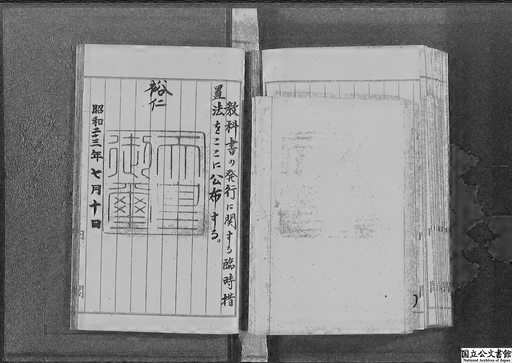 教科書の発行に関する臨時措
置法をここに公布する。
裕仁
天皇御璽
昭和二十三年七月十日
国立公文書館
National Archives of Japan